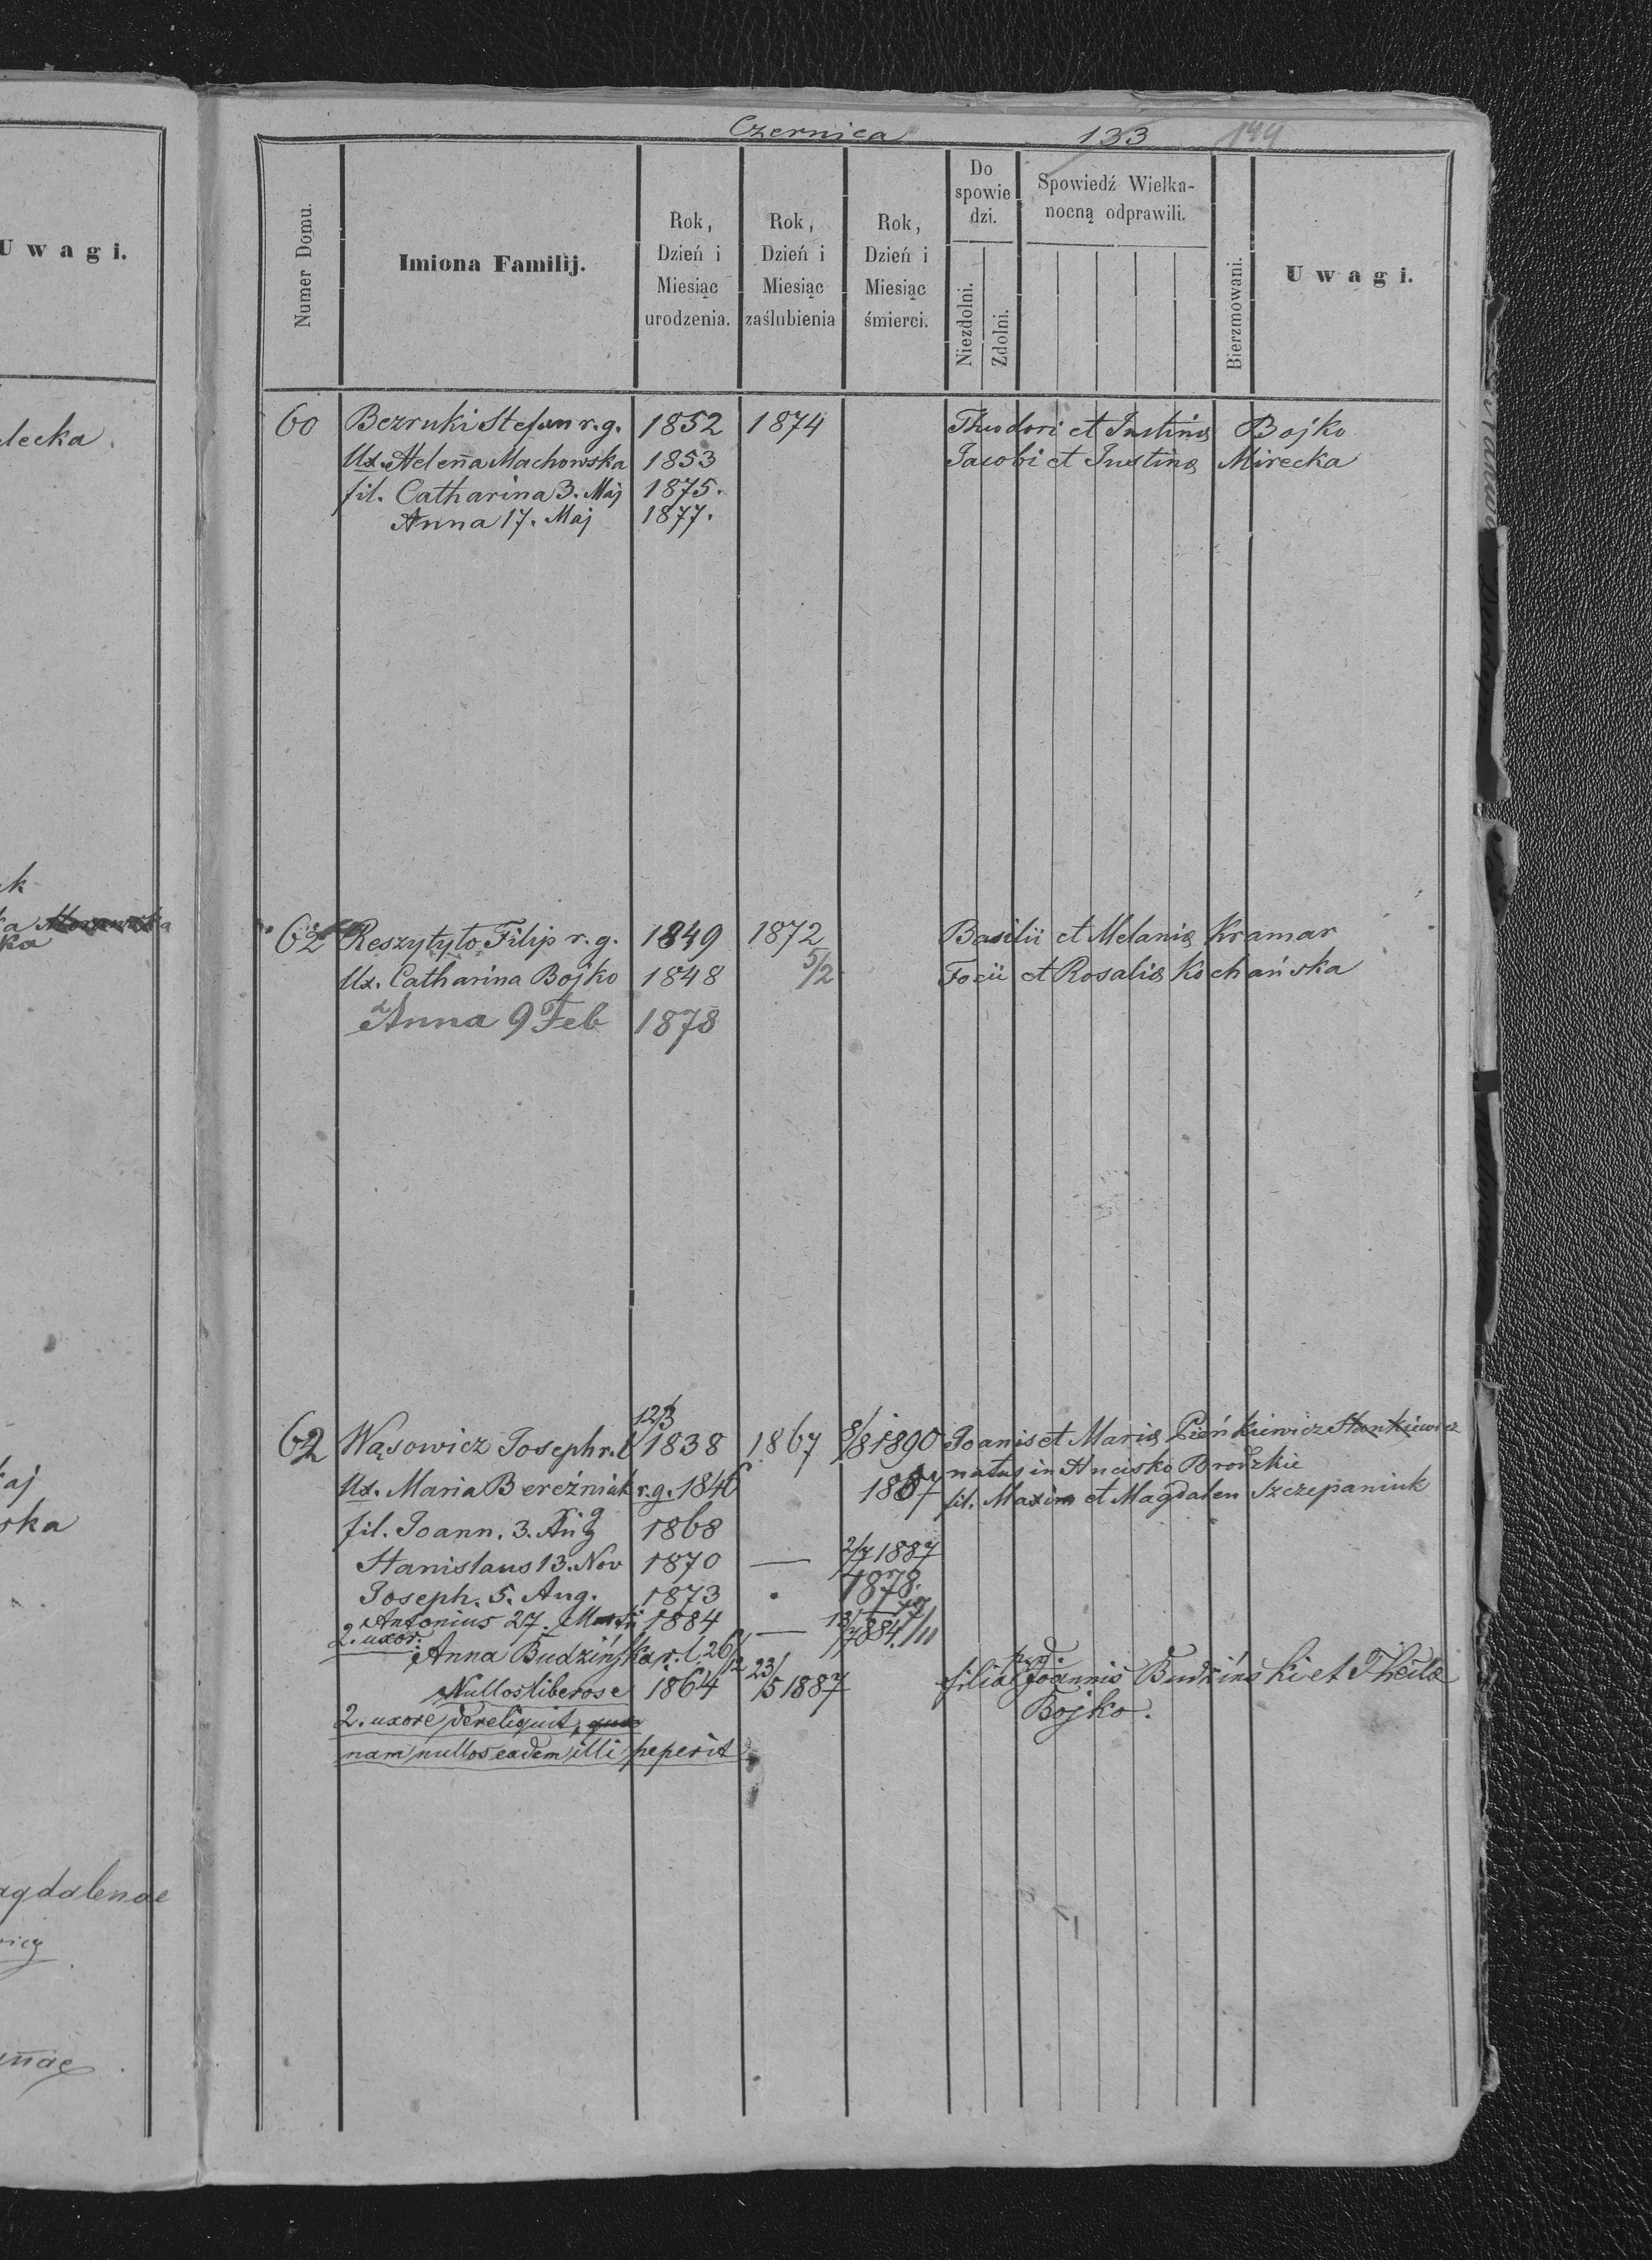 Uwagi.
decka.
k
ka
aj
ska
agdalenae
Czernica 133 144
Numer Domu.
Imiona Familij.
Rok, Dzień i Miesiąc urodzenia.
Rok, Dzień i Miesiąc zaślubienia
Rok, Dzień i Miesiąc śmierci.
Do spowie dzi.
Niezdolni.
Zdolni.
Spowiedź Wielka-
nocną odprawili.
Bierzmowani.
Uwagi.
60 Bezruki Stefan r.g. 1852 1874 Theodori et Justinę Bojko
Ux. Helena Machowska 1853 Jacobi et Justinę Mirecka
fil. Catharina 3. Maj 1875.
Anna 17. Maj 1877.
62 Reszytyto Filip r.g. 1849 1872 Basilii et Melanię Kramar
5/2
Ux. Catharina Bojko 1848 Focii et Rosalię Kochańska
Anna 9 Feb 1878
12/3
62 Wąsowicz Joseph r.l. 1838 1867 8/8 1890 Joanis et Marię Pieńkiewicz Stankiewicz
natus in Brodzkie
Ux. Maria Bereźniak r.g. 1846 1887 fil. Maxim et Magdalen Szczepaniuk
fil. Joann. 3. Aug 1868
Stanislaus 13. Nov 1870 — 2/7 1887
Joseph. 5. Aug. 1873 1878.
Antonius 27. Martii 1884 — 1884
2. uxor:
Anna Budzińska r.l. 26/12
Nullos liberos e 1864 23/5 1887 filia Joannis Budziński et Theclae
2. uxore dereliquit, quae Bojko.
nam nullos eadem illi peperit